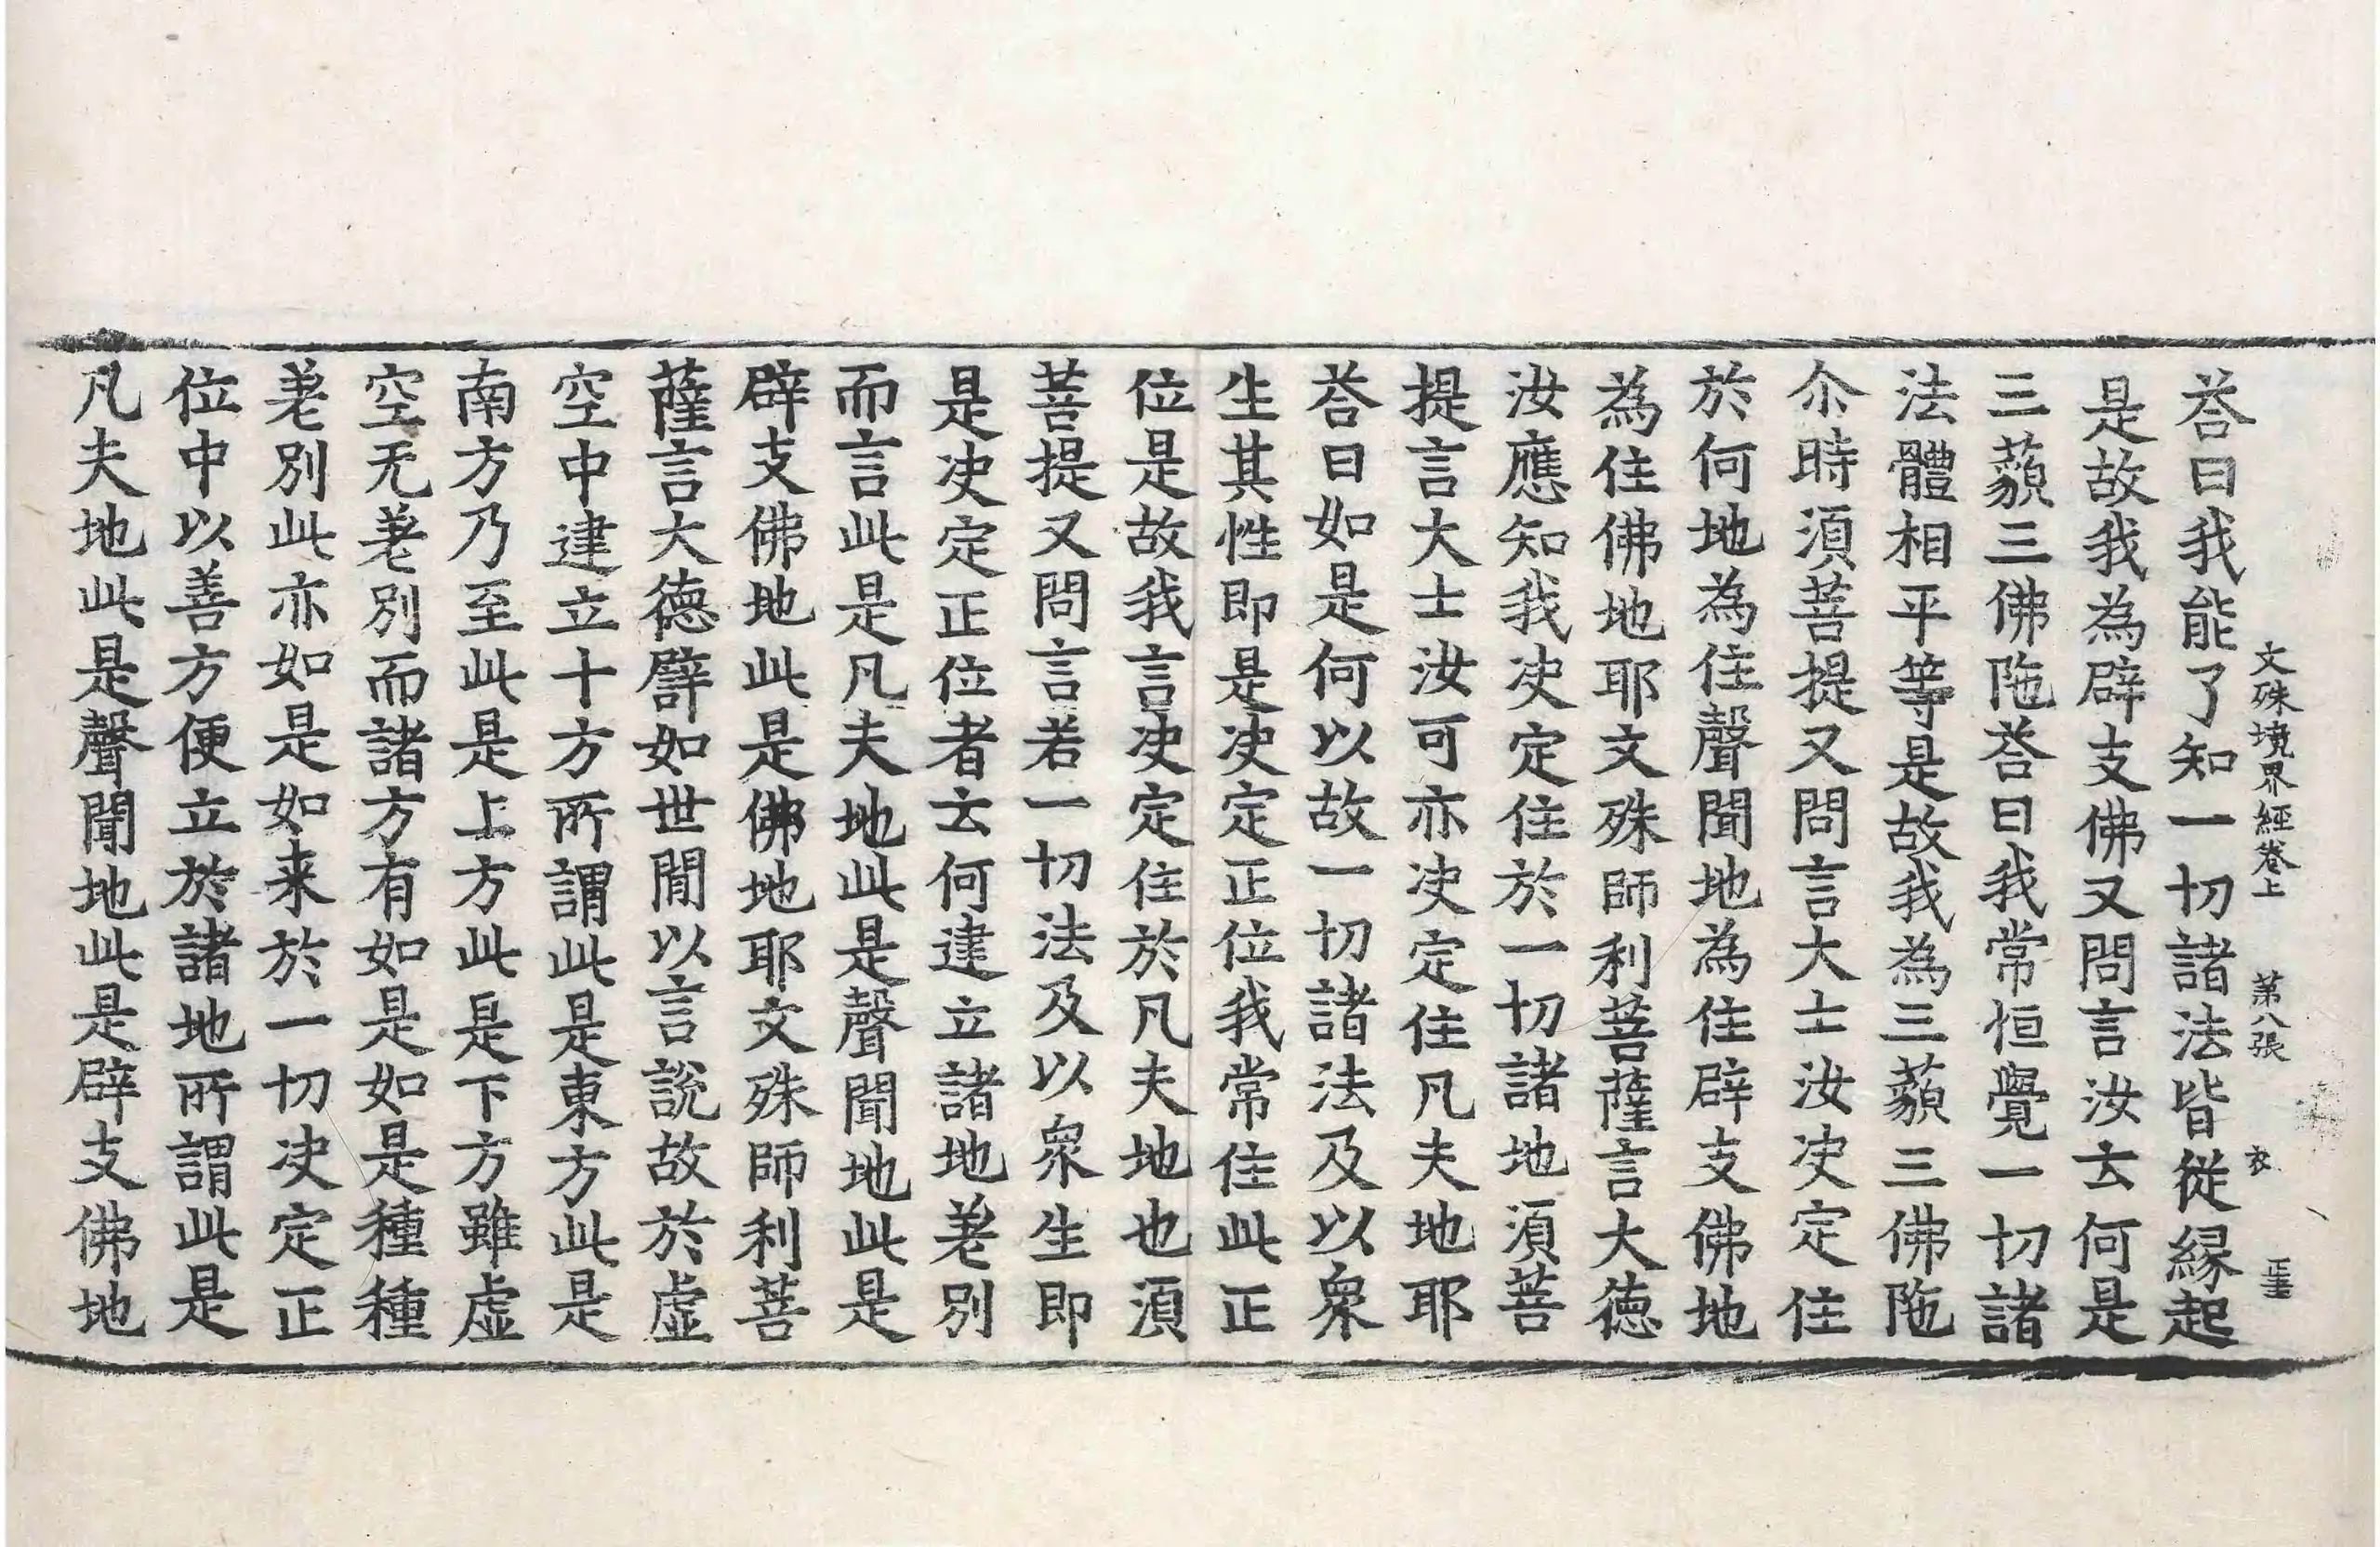 文殊境界經卷上　第八張　衣
荅曰我能了知一切諸法皆從緣起
是故我為辟支佛又問言汝云何是
三藐三佛陁荅曰我常恒覺一切諸
法體相平等是故我為三藐三佛陁
尒時湏菩提又問言大士汝决定住
於何地為住聲聞地為住辟支佛地
為住佛地耶文殊師利菩薩言大德
汝應知我决定住於一切諸地湏菩
提言大士汝可亦决定住凡夫地耶
荅曰如是何以故一切諸法及以衆
生其性即是决定正位我常住此正
位是故我言决定住於凡夫地也湏
菩提又問言若一切法及以衆生即
是决定正位者云何建立諸地差別
而言此是凡夫地此是聲聞地此是
辟支佛地此是佛地耶文殊師利菩
薩言大德譬如世間以言說故於虛
空中建立十方所謂此是東方此是
南方乃至此是上方此是下方雖虛
空无差別而諸方有如是如是種種
差別此亦如是如来於一切决定正
位中以善方便立於諸地所謂此是
凡夫地此是聲聞地此是辟支佛地